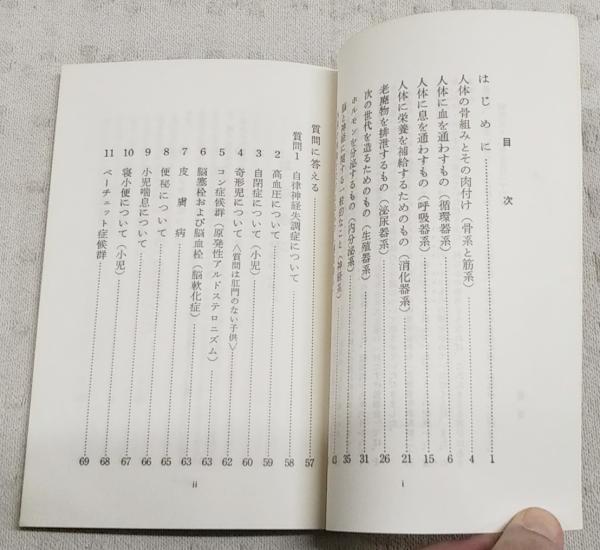 目次
はじめに…………1
人体の骨組みとその肉付け（骨系と筋系）…………4
人体に血を通わすもの（循環器系）…………6
人体に息を通わすもの（呼吸器系）…………15
人体に栄養を補給するためのもの（消化器系）…………21
老廃物を排泄するもの（泌尿器系）…………26
次の世代を造るためのもの（生殖器系）…………31
ホルモンを分泌するもの（内分泌系）…………35
脳と神経に関する一般的なこと（神経系）…………43
i
質問に答える…………57
質問1 自律神経失調症について…………58
2 高血圧について…………59
3 自閉症について（小児）…………60
4 奇形児について〈質問は肛門のない子供〉…………60
5 コン症候群（原発性アルドステロニズム）…………62
6 脳塞栓および脳血栓（脳軟化症）…………63
7 皮膚病…………63
8 便秘について…………65
9 小児喘息について…………66
10 寝小便について（小児）…………67
11 ベーチェット症候群…………69
68
ii